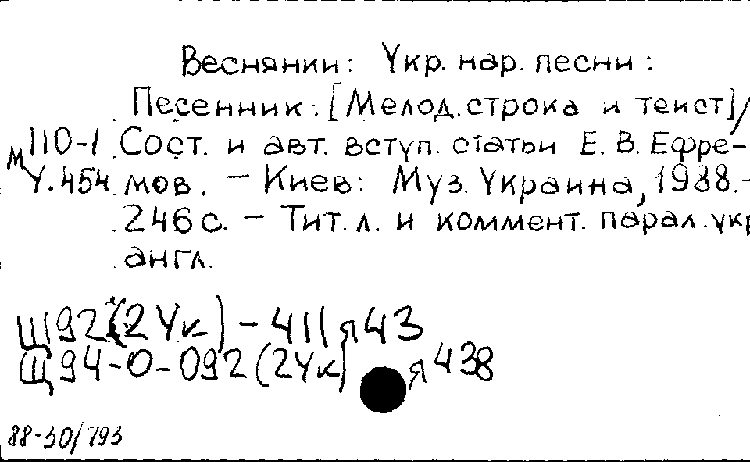 Веснянки: Укр. нар. песни:
Песенник: [Мелод. строка и текст]/
м110-1 Сост. и авт. вступ. статьи Е. В. Ефре-
У.454 мов. - Киев: Муз. Украина, 1988.-
246 с. - Тит. л. и коммент. парал. укр
англ.
Щ92(2Ук)-411я43
Щ94-0-092(2Ук) я438
88-30/793